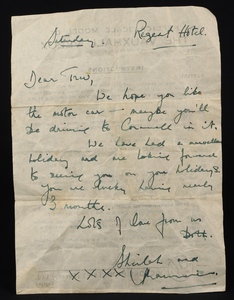 Saturday Regent Hotel.
Dear Trev,
We hope you like
the motor car - maybe you'll
be driving to Cornwall in it.
We have had a marvellous
holiday and are looking forward
to seeing you on your holidays
You're lucky having nearly
3 months.
Lots of love from us
both.
Sheilah and
x x x x